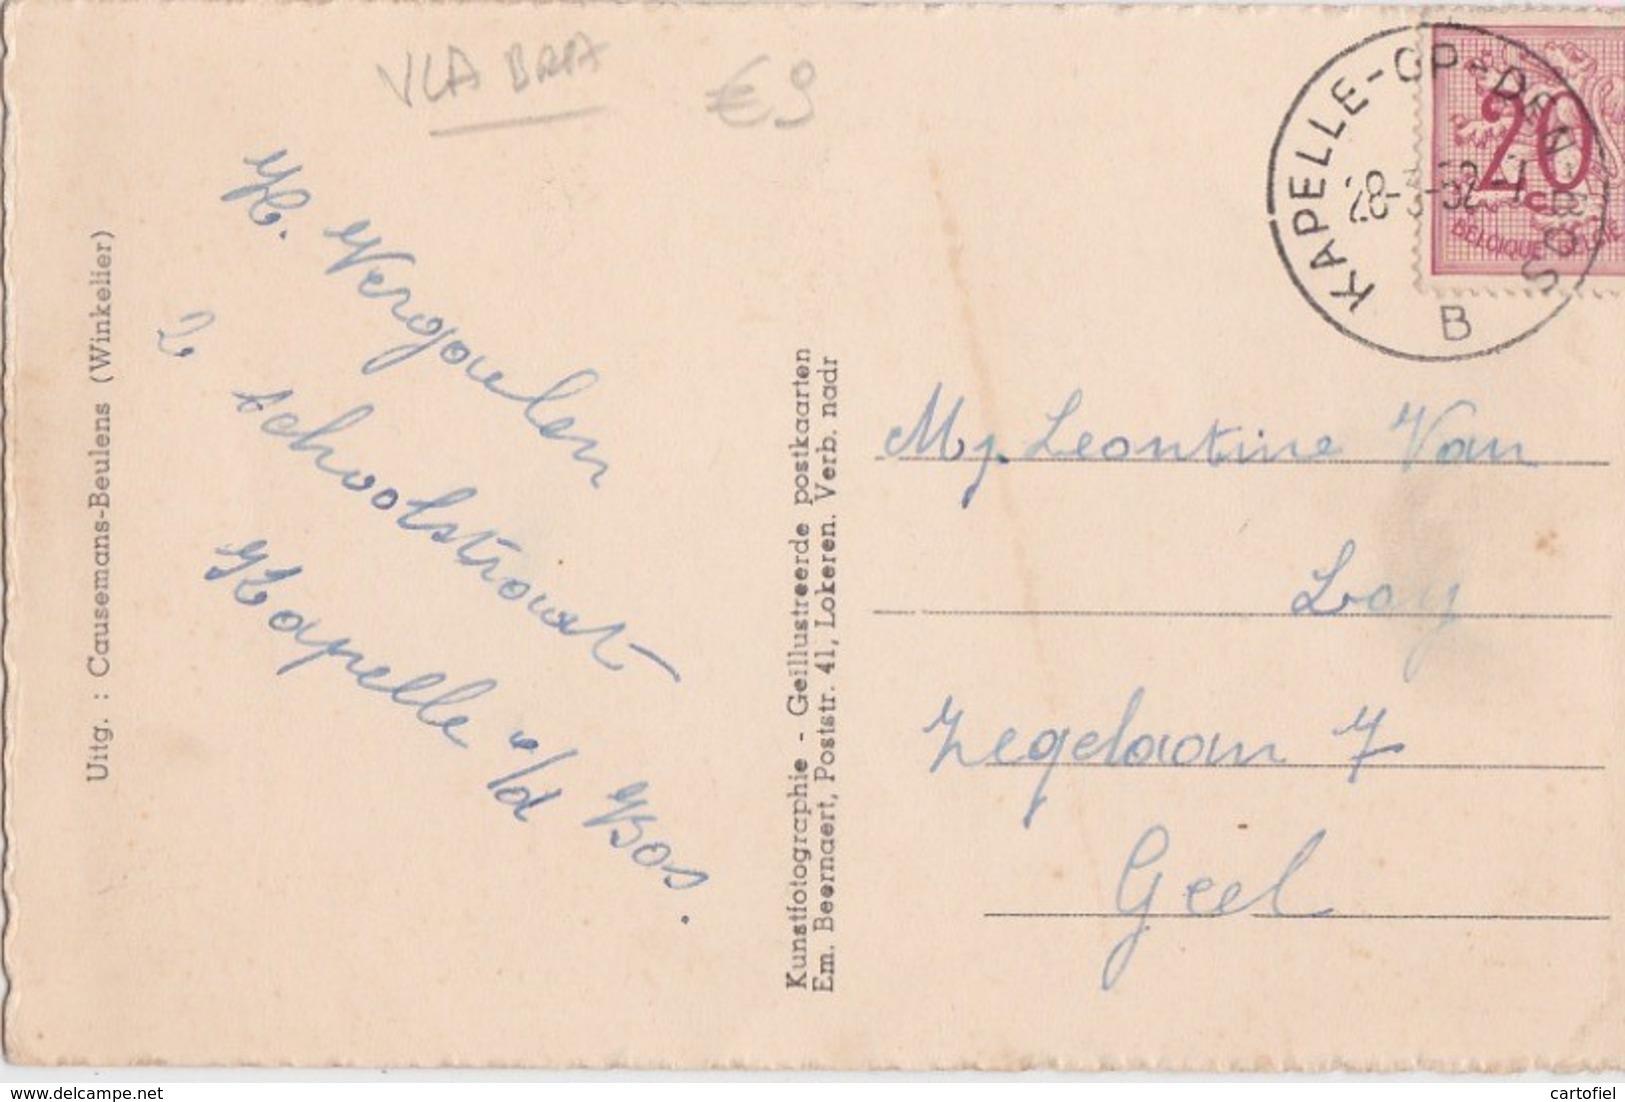 VLA BRA
€ 9
H. Vergaelen
2 schoolstraat
Kapelle o/d Bos.
Uitg. : Causemans-Beulens (Winkelier)
Kunstfotographie - Geïllustreerde postkaarten
Em. Beernaert, Poststr. 41, Lokeren. Verb. nadr
KAPELLE-OP-DEN-BOS
B
20
BELGIQUE BELGIË
Mj. Leontine Van
Looy
Zegelaan 7
Geel
cartofiel